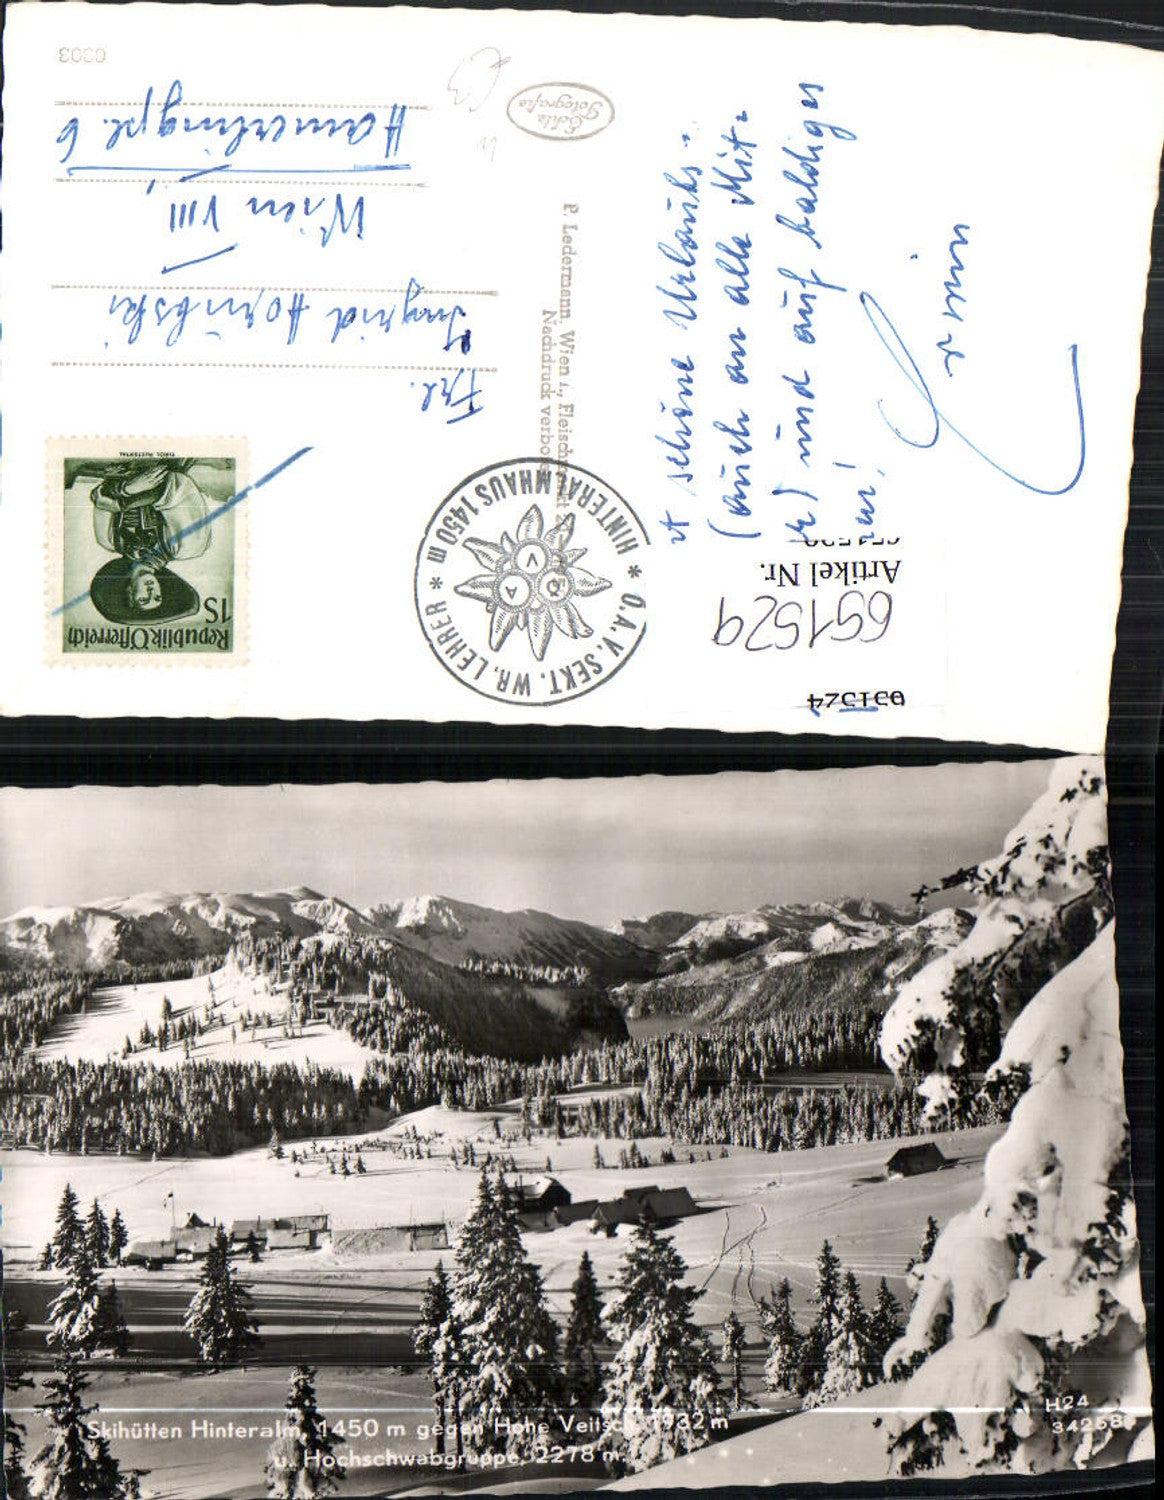 0303
Echte
Fotografie
P. Ledermann, Wien 1., Fleischmarkt 20
Nachdruck verboten
t schöne Urlaubs=
(auch an alle Mit=
r) und auf baldiges
Frl.
Ingrid
Wien VIII
Hamerlingpl. 6
Republik Österreich
1S
TIROL PUSTERTAL
* Ö.A.V. SEKT. WR. LEHRER * HINTERALMHAUS 1450 m
Ö A V
Artikel Nr.
651529
651524
Skihütten Hinteralm, 1450 m gegen Hohe Veitsch, 1932 m
u. Hochschwabgruppe, 2278 m.
H24
34268